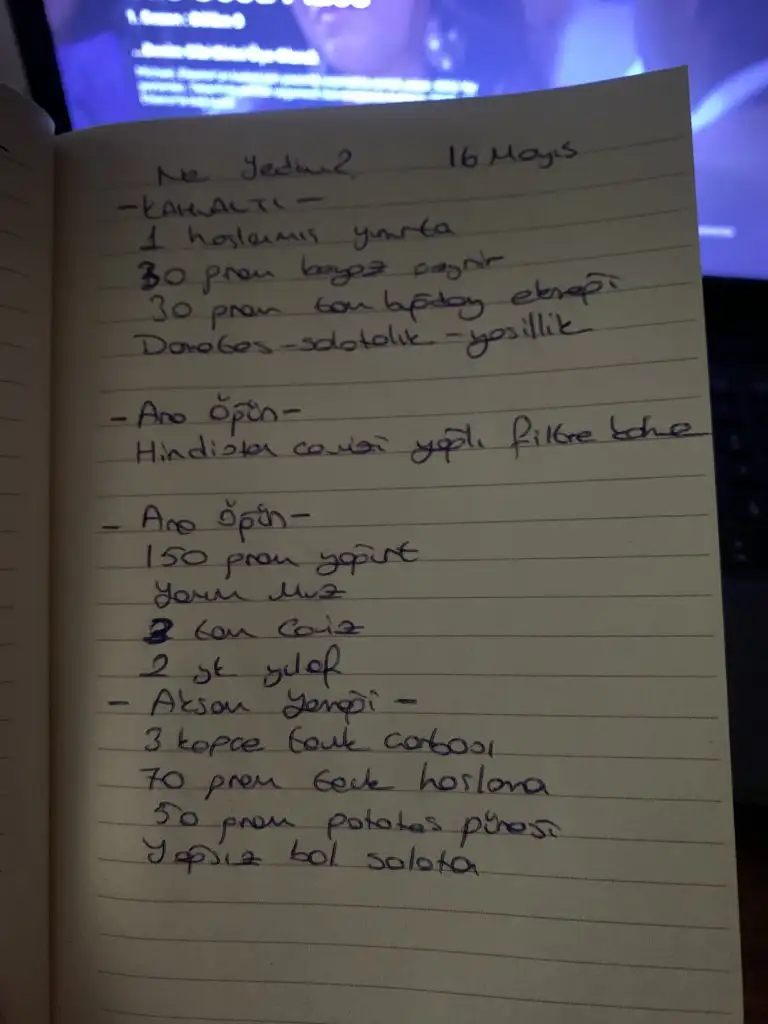 1. Sezon: Bölüm 3
Ne Yedim? 16 Mayıs
- KAHVALTI -
1 haşlanmış yumurta
30 gram beyaz peynir
30 gram tam buğday ekmeği
Domates - salatalık - yeşillik
- Ara Öğün -
Hindistan cevizi yağlı filtre kahve
- Ara Öğün -
150 gram yoğurt
Yarım Muz
3 tam Ceviz
2 yk yulaf
- Akşam Yemeği -
3 kepçe tavuk çorbası
70 gram tavuk haşlama
50 gram patates püresi
Yağsız bol salata